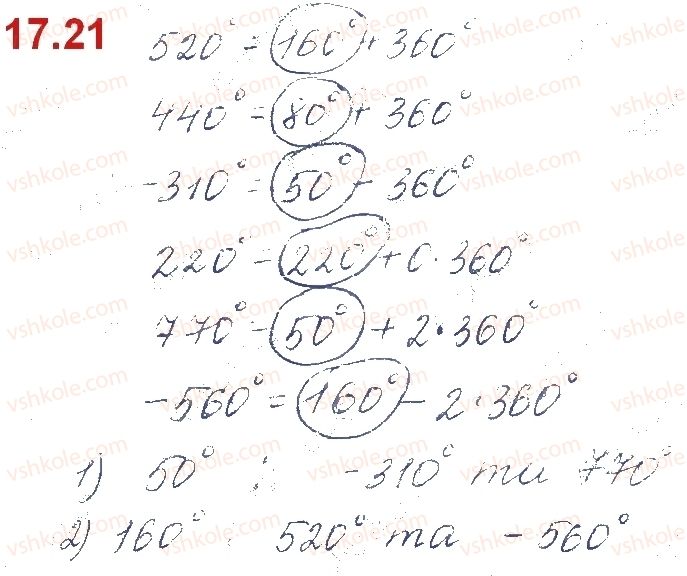 17.21
520° = 160° + 360°
440° = 80° + 360°
-310° = 50° - 360°
220° = 220° + 0·360°
770° = 50° + 2·360°
-560° = 160° - 2·360°
1) 50° : -310° та 770°
2) 160° : 520° та -560°